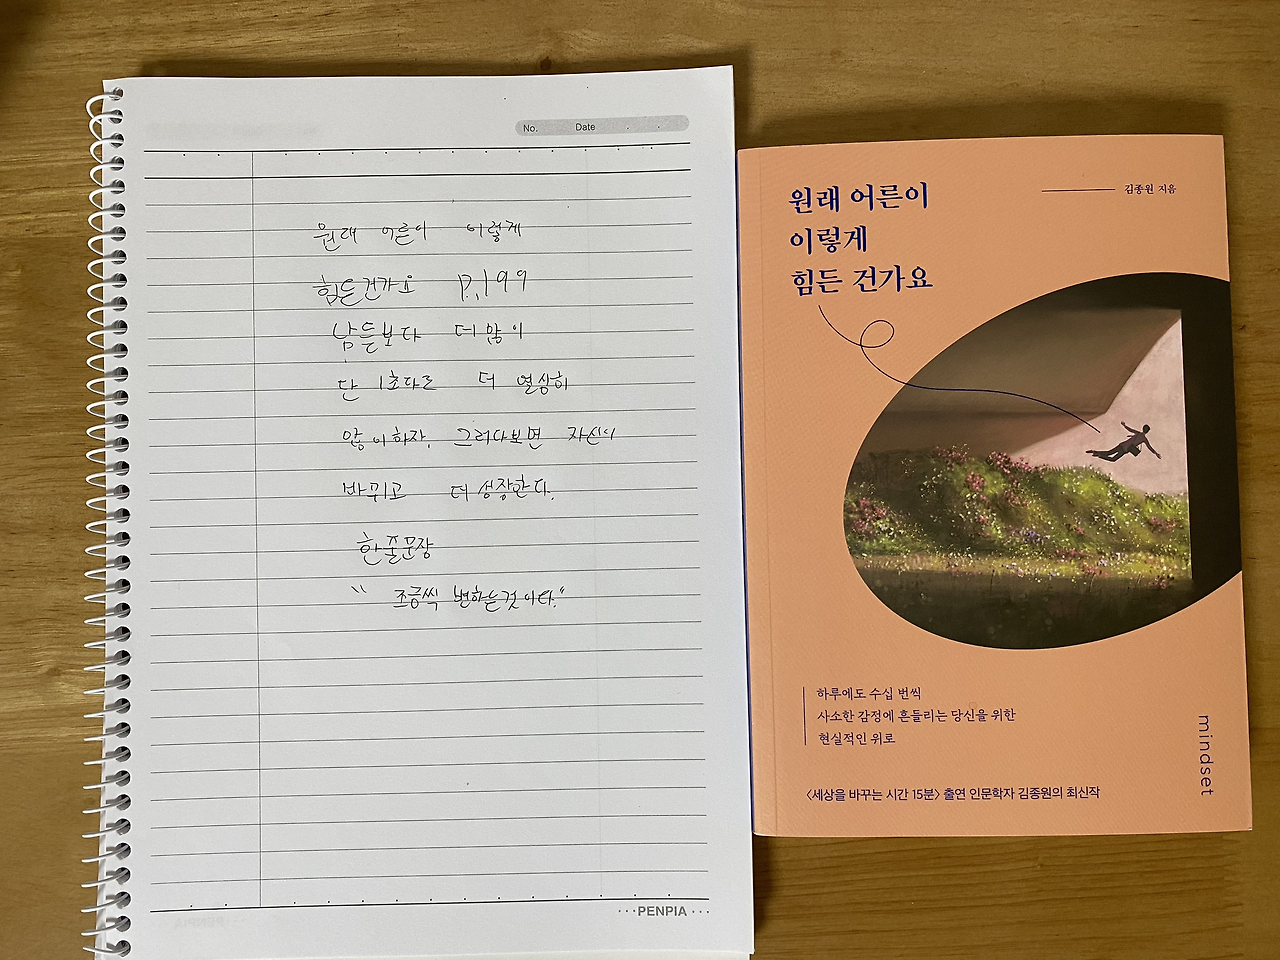 No. Date
원래 어른이 이렇게
힘든건가요 P.199
남들보다 더 많이
단 1초라도 더 열심히
많이하자. 그러다보면 자신이
바뀌고 더 성장한다.
한줄문장
"조금씩 변하는것이다."
PENPIA
원래 어른이
이렇게
힘든 건가요
김종원 지음
하루에도 수십 번씩
사소한 감정에 흔들리는 당신을 위한
현실적인 위로
mindset
<세상을 바꾸는 시간 15분> 출연 인문학자 김종원의 최신작